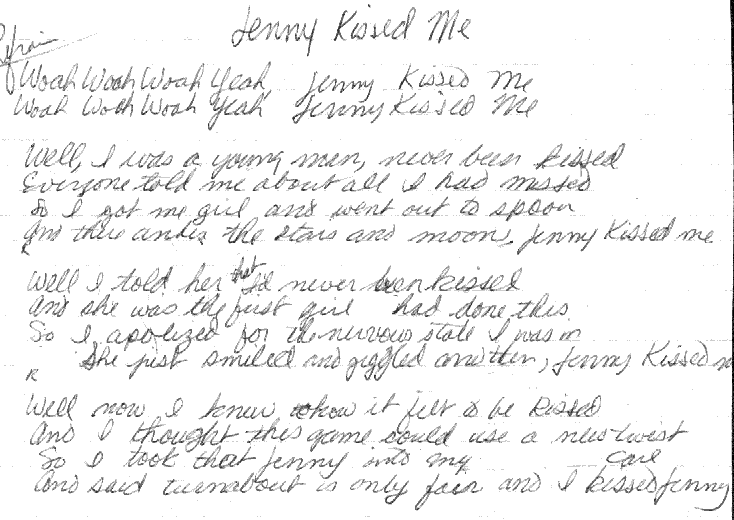 Jenny Kissed Me
Refrain
Woah Woah Woah Yeah, Jenny Kissed Me
Woah Woah Woah Yeah Jenny Kissed Me
Well, I was a young man, never been kissed
Everyone told me about all I had missed
So I got me girl and went out to spoon
And there under the stars and moon, Jenny Kissed me
R
Well I told her that I'd never been kissed
And she was the first girl had done this
So I apolized for the nervous state I was in
She just smiled and giggled and then, Jenny Kissed
R
Well now I knew how it felt to be kissed
And I thought this game could use a new twist
So I took that Jenny into my care
And said turnabout is only fair and I kissed Jenny